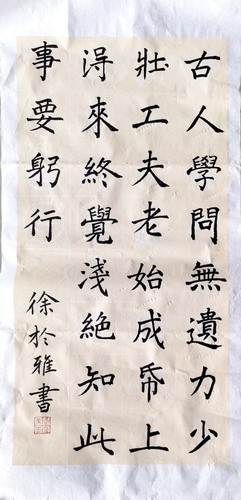 古人學問無遺力少
壯工夫老始成帋上
淂來終覺淺絕知此
事要躬行
徐於雅書